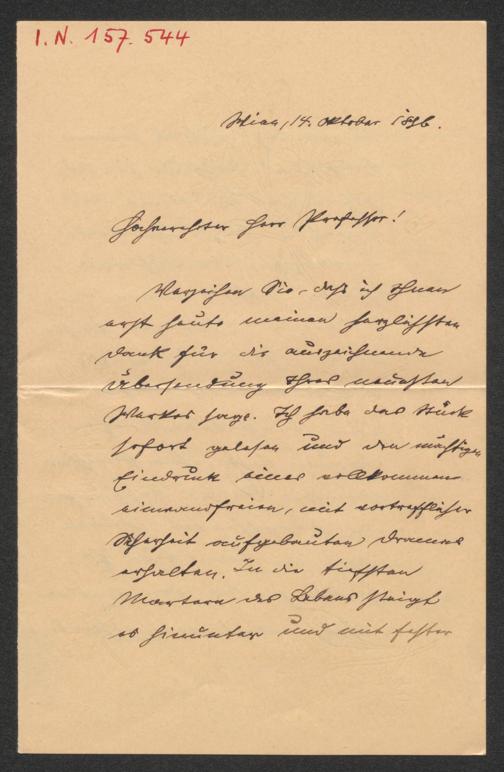 I.N. 157.544
Wien, 14. Oktober 1896.
Hochverehrter Herr Professor!
Verzeihen Sie, daß ich Ihnen
erst heute meinen herzlichsten
Dank für die auszeichnende
Übersendung Ihres neuesten
Werkes sage. Ich habe das Stück
sofort gelesen und den mächtigen
Eindruck eines vollkommen
einwandfreien, mit vortrefflicher
Sicherheit aufgebauten Dramas
erhalten. In die tiefsten
Martern des Lebens steigt
es hinunter und mit fester